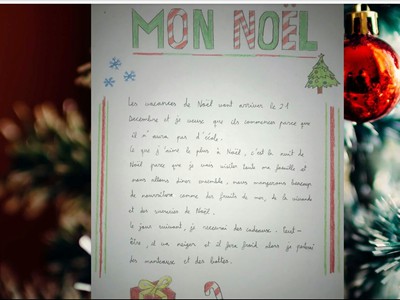 MON NOËL
Les vacances de Noël vont arriver le 21
Decembre et je veux que ils commencer parce que
il n'aura pas d'école.
Ce que j'aime le plus à Noël, c'est la nuit de
Noël parce que je vais visiter toute ma famille et
nous allons diner ensemble, nous mangerons beaucoup
de nourriture comme des fruits de mer, de la viande
et des sucreries de Noël.
Le jour suivant, je recevrai des cadeaux. Peut-
être, il va neiger et il fera froid alors je porterai
des manteaux et des bottes.